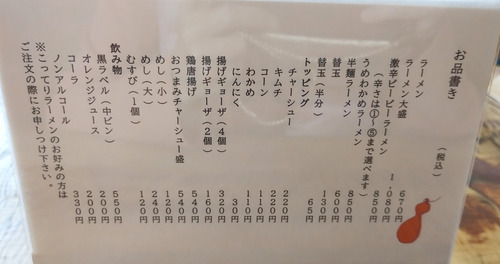 お品書き
（税込）
ラーメン 670円
ラーメン大盛 850円
激辛ビービーラーメン 1,080円
（辛さは①～⑤まで選べます）
うめわかめラーメン 850円
半麺ラーメン 600円
替玉 130円
替玉（半分） 65円
トッピング
チャーシュー 220円
キムチ 220円
コーン 110円
わかめ 110円
にんにく 30円
揚げギョーザ（4個） 320円
揚げギョーザ（2個） 160円
鶏唐揚げ 540円
おつまみチャーシュー盛 540円
めし（小） 120円
めし（大） 240円
むすび（1個） 120円
飲み物
黒ラベル（中ビン） 550円
オレンジジュース 200円
コーラ 200円
ノンアルコール 330円
※こってりラーメンのお好みの方は
ご注文の際にお申しつけ下さい。